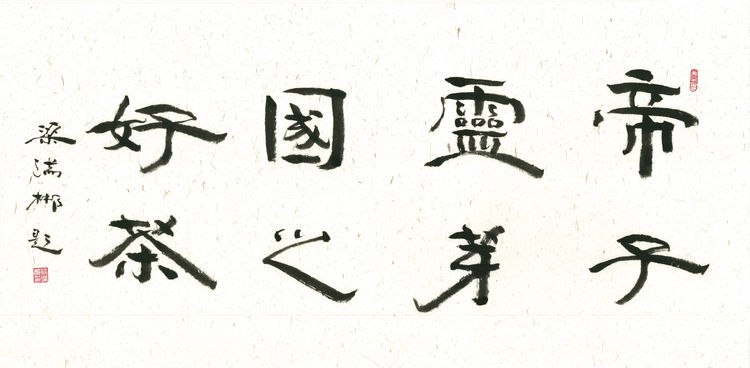 帝子
靈芽
國之
好茶
梁滿彬題